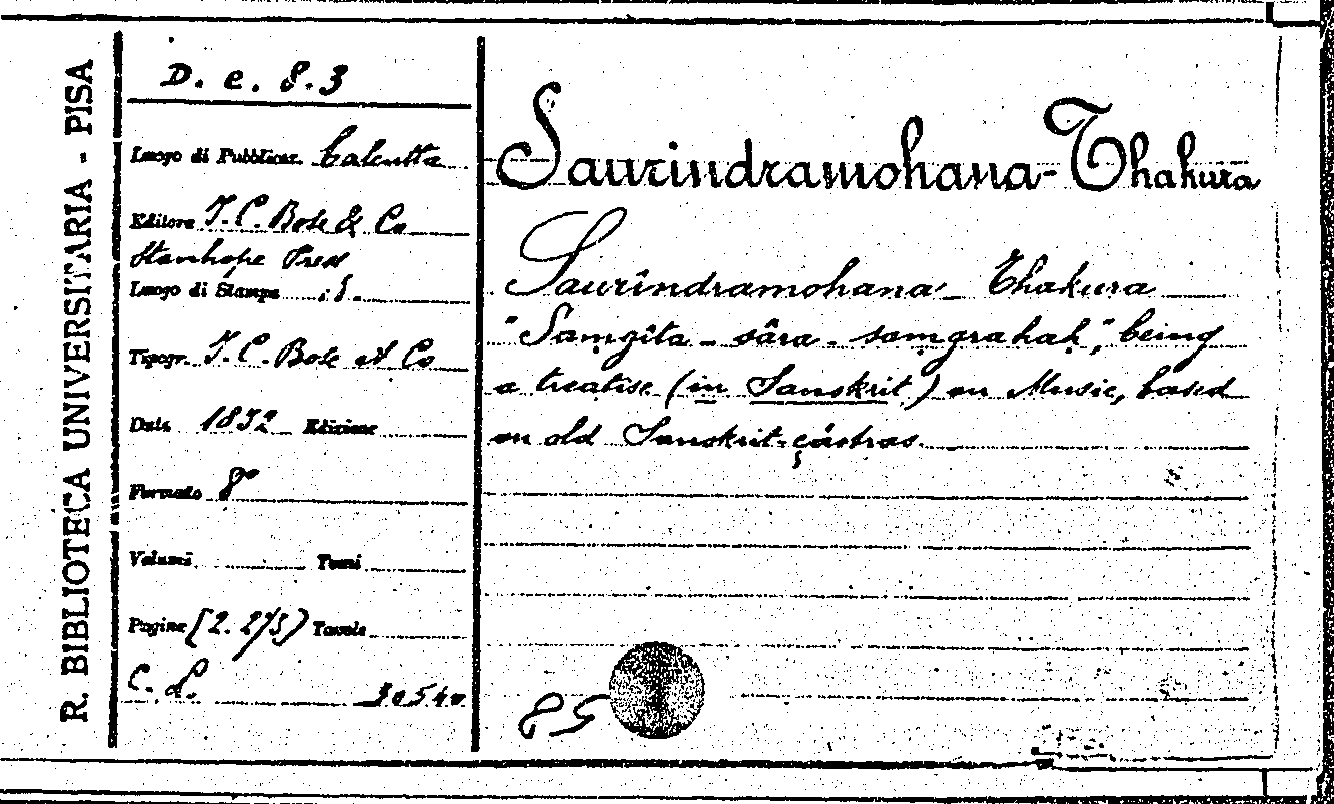 R. BIBLIOTECA UNIVERSITARIA - PISA
D. e. 8.3
Luogo di Pubblicaz. Calcutta
Editore I. C. Bose & Co
Stanhope Press
Luogo di Stampa
Tipogr. I. C. Bose et Co
Data Edizione
Formato 8°
Volumi Tomi
Pagine Tavole
C. L. 30540
Saurindramohana-Thakura
Saurîndramohana - Thakura
"Saṃgîta - sâra - saṃgrahaḥ", being
a treatise (in Sanskrit) on Music, based
on old Sanskrit-çâstras.
85